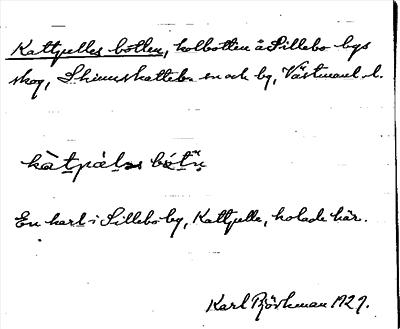 Kattpelles botten, kolbotten å Sillebo bys
skog, Skinnskatteb. en och by, Västmanl. l.
kàtpæ̀lǝs bótn̥
En karl i Sillebo by, Kattpelle, kolade här.
Karl Björkman 1929.